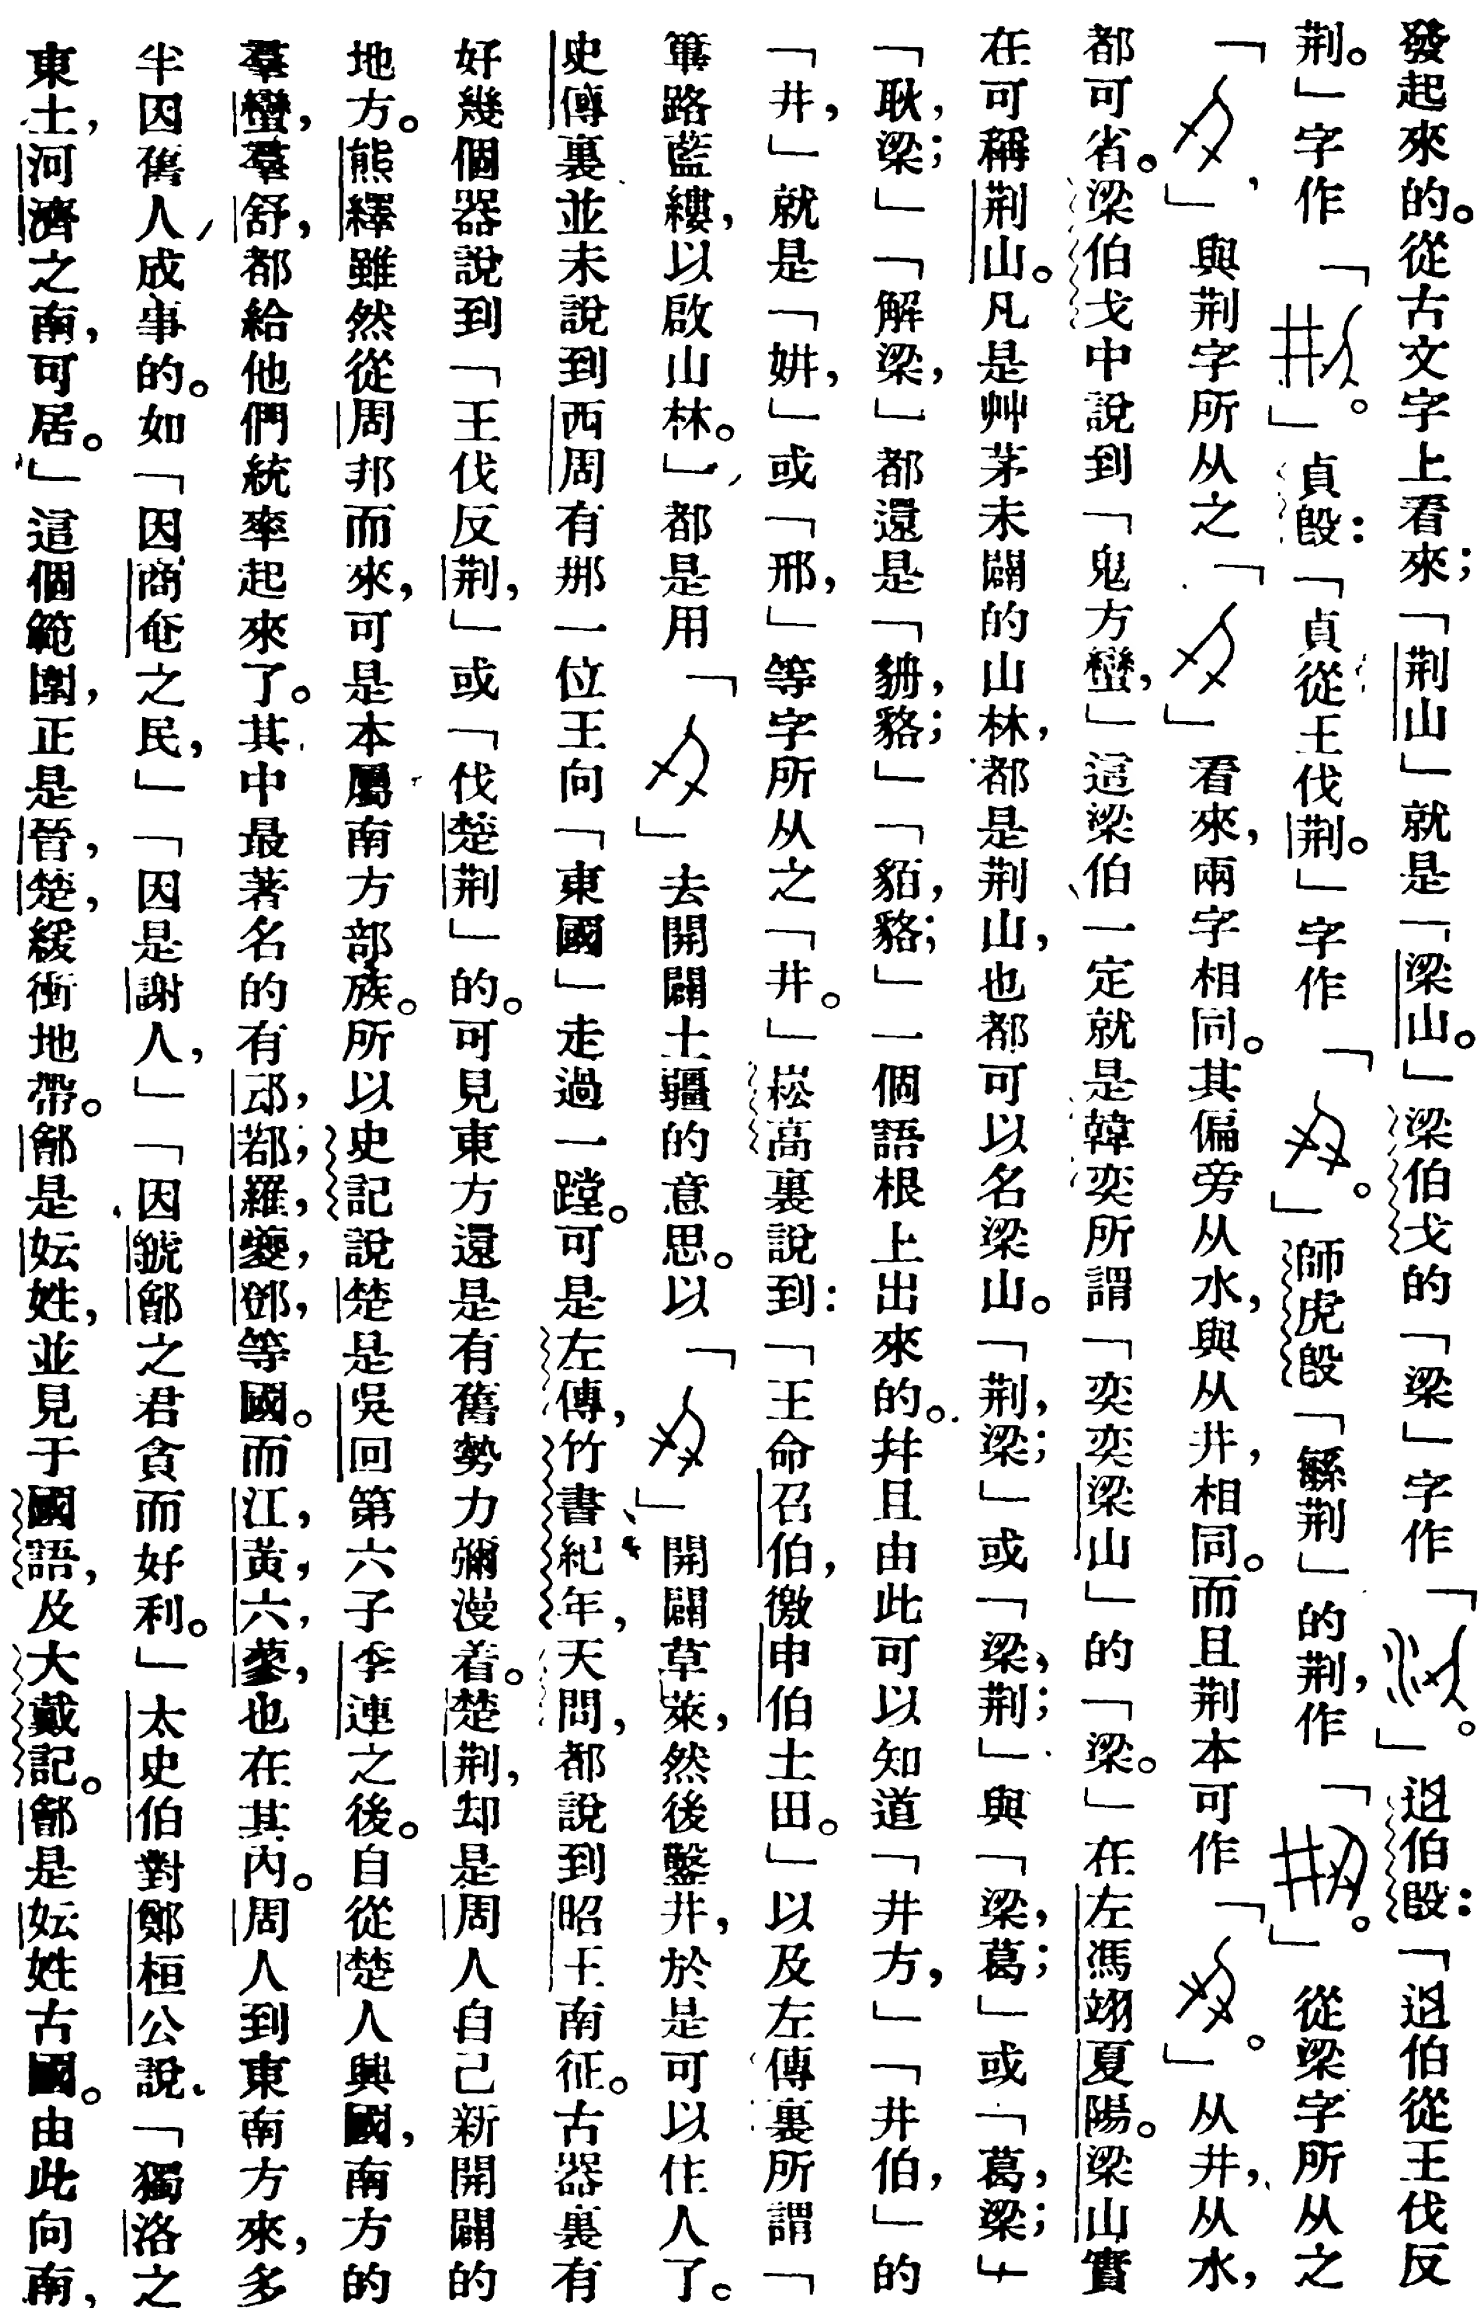 發起來的。從古文字上看來；「荆山」就是「梁山。」梁伯戈的「梁」字作「　。」𨒪伯𣪘：「𨒪伯從王伐反
荆。」字作「　。」貞𣪘：「貞從王伐荆。」字作「　。」師虎𣪘「緐荆」的荆，作「　。」從梁字所从之
「　，」與荆字所从之「　」看來，兩字相同。其偏旁从水，與从井，相同。而且荆本可作「　。」从井，从水，
都可省。梁伯戈中說到「鬼方蠻，」這梁伯一定就是韓奕所謂「奕奕梁山」的「梁。」在左馮翊夏陽。梁山實
在可稱荆山。凡是艸茅未闢的山林，都是荆山，也都可以名梁山。「荆，梁；」或「梁，荆；」與「梁，葛；」或「葛，梁；」
「耿，梁；」「解梁，」都還是「貈，貉；」「貊，貉；」一個語根上出來的。幷且由此可以知道「井方，」「井伯，」的
「井，」就是「妌，」或「邢，」等字所从之「井。」崧高裏說到：「王命召伯，徹申伯土田。」以及左傳裏所謂「
篳路藍縷，以啟山林。」都是用「　」去開闢土疆的意思。以「　」開闢草萊，然後鑿井，於是可以住人了。
史傳裏並未說到西周有那一位王向「東國」走過一蹚。可是左傳，竹書紀年，天問，都說到昭王南征。古器裏有
好幾個器說到「王伐反荆，」或「伐楚荆」的。可見東方還是有舊勢力彌漫着。楚荆，却是周人自己新開闢的
地方。熊繹雖然從周邦而來，可是本屬南方部族。所以史記說楚是吳回第六子季連之後。自從楚人興國，南方的
羣蠻，羣舒，都給他們統率起來了。其中最著名的有䢵，鄀，羅，夔，鄧，等國。而江，黃，六，蓼，也在其內。周人到東南方來，多
半因舊人成事的。如「因商奄之民，」「因是謝人，」「因虢鄶之君貪而好利。」太史伯對鄭桓公說「獨洛之
東土，河濟之南，可居。」這個範圍，正是晉，楚，緩衝地帶。鄶是妘姓，並見于國語，及大戴記。鄶是妘姓古國。由此向南，